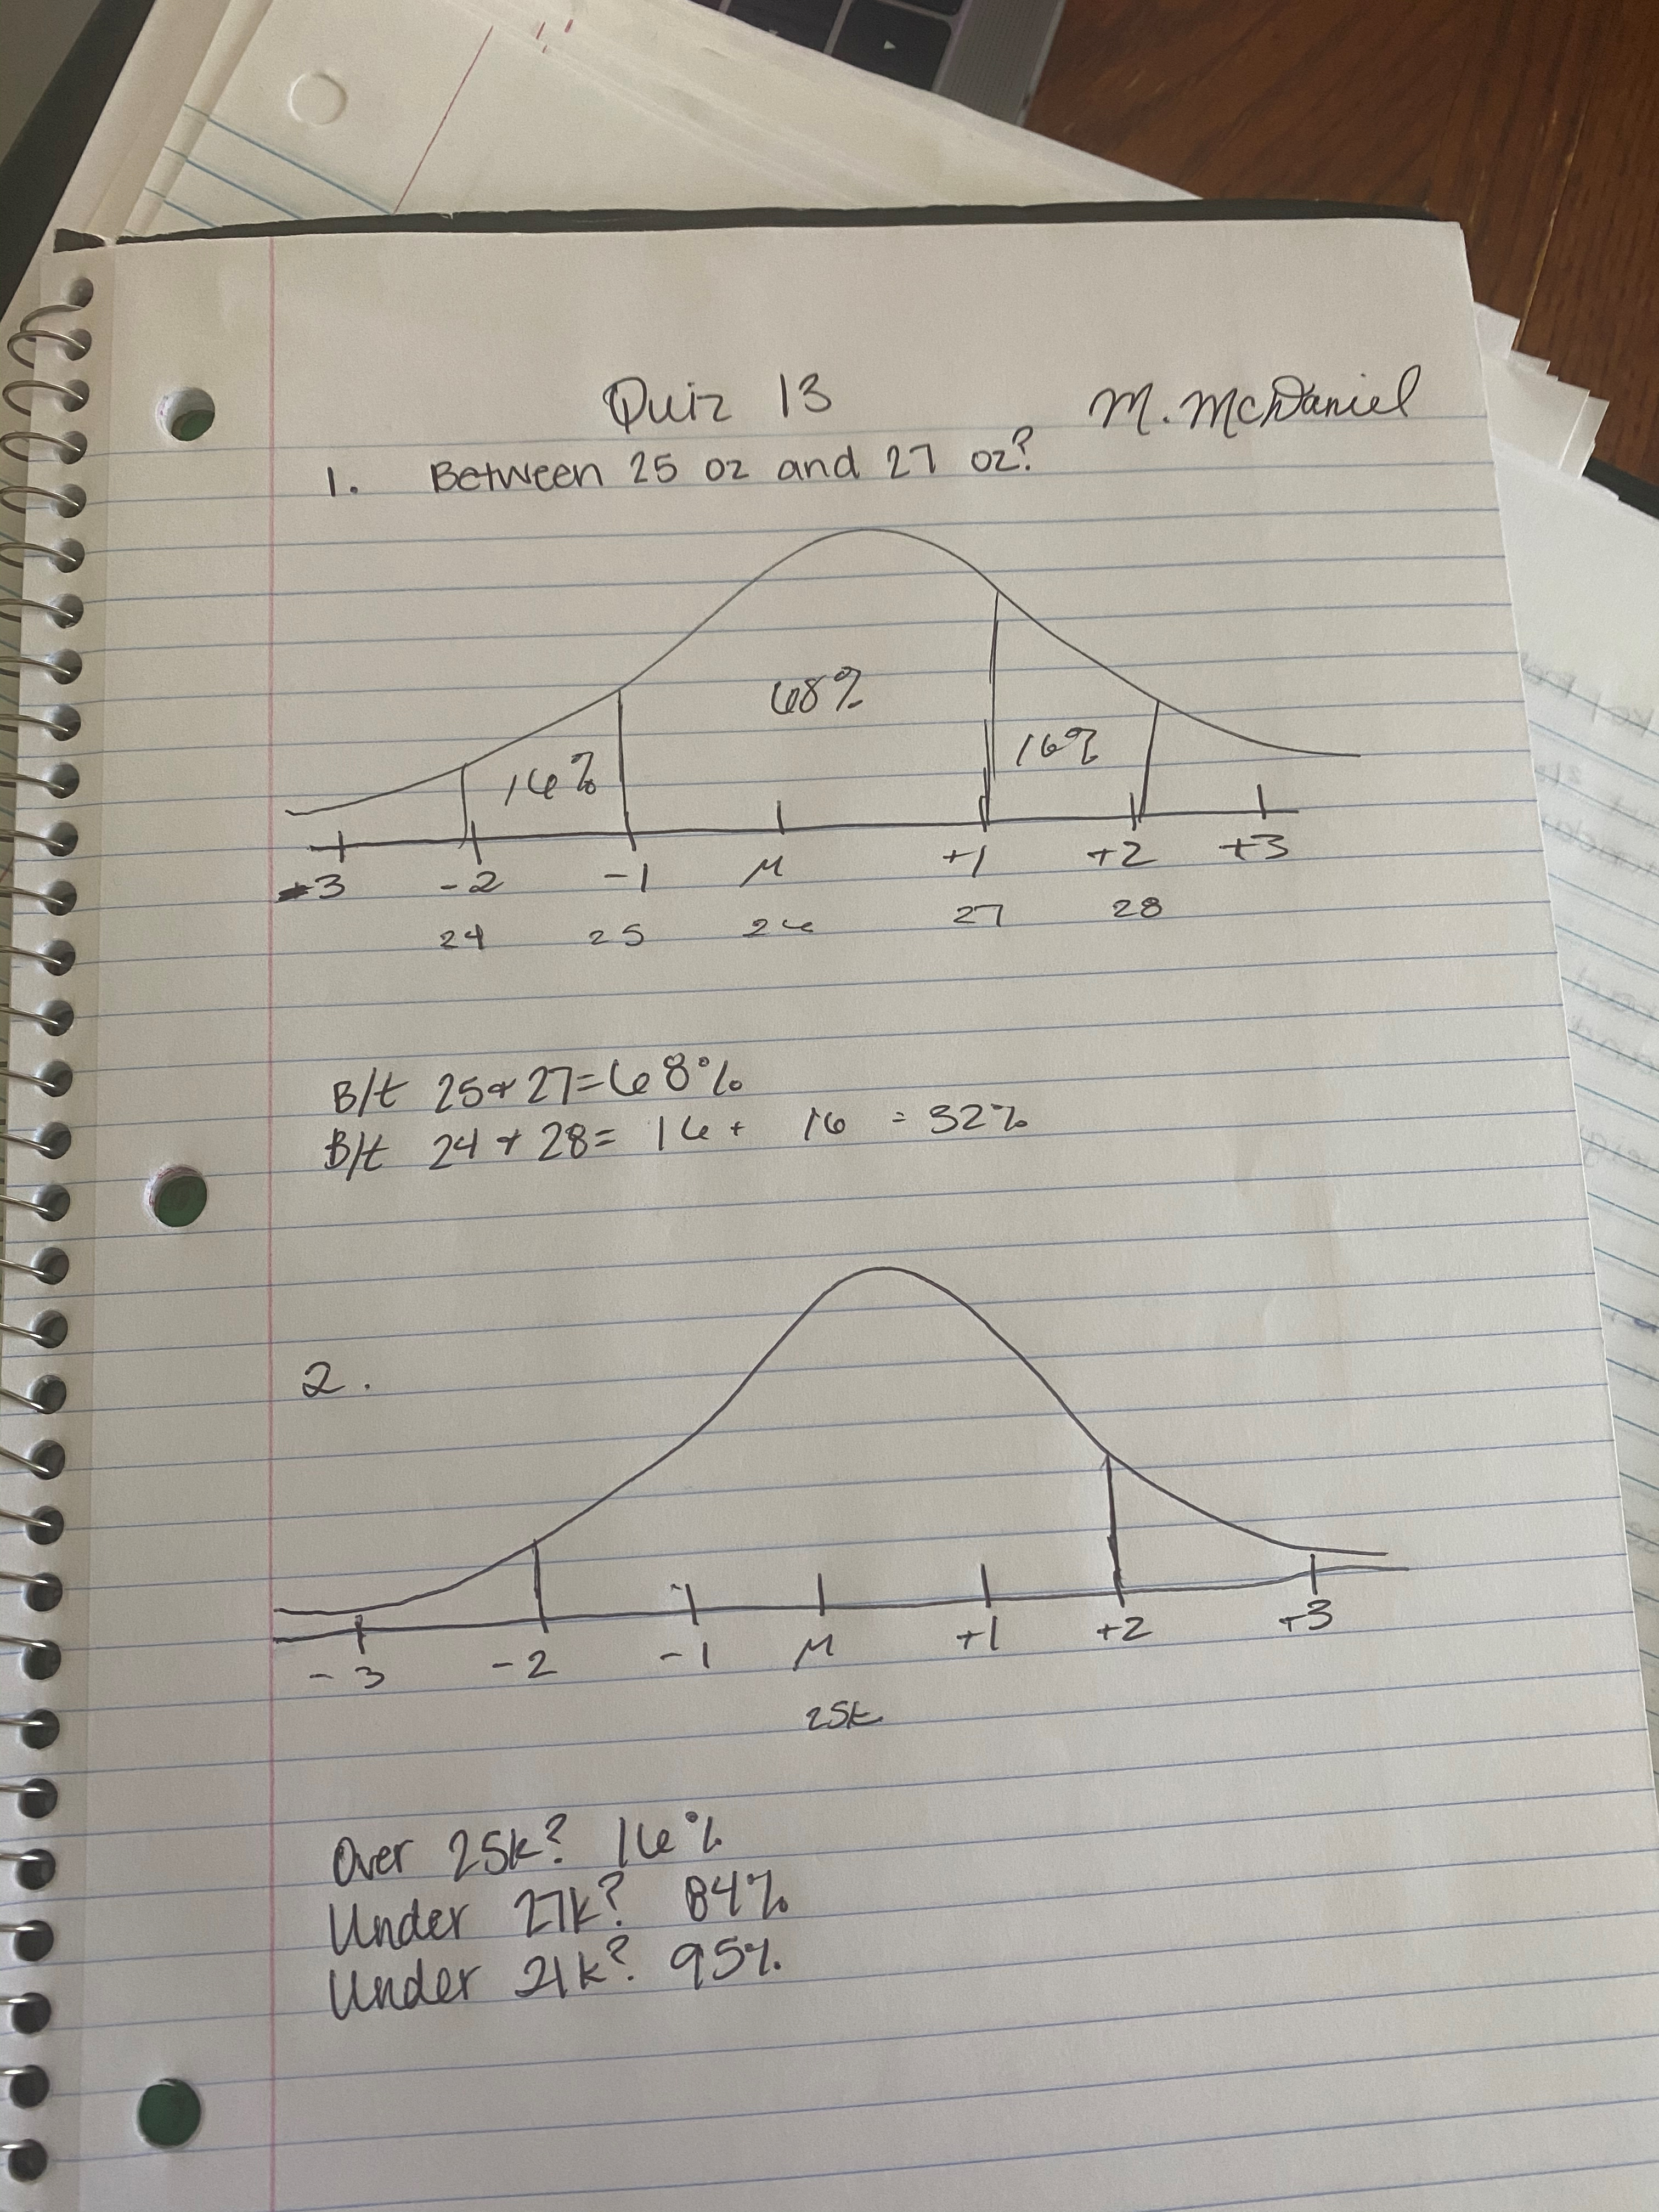 Quiz 13 M. McDaniel
1. Between 25 oz and 27 oz?
68%
16% 16%
-3 -2 -1 μ +1 +2 +3
24 25 26 27 28
B/t 25 & 27 = 68%
B/t 24 & 28 = 16 + 16 = 32%
2.
-3 -2 -1 μ +1 +2 +3
25k
Over 25k? 16%
Under 27k? 84%
Under 21k? 95%